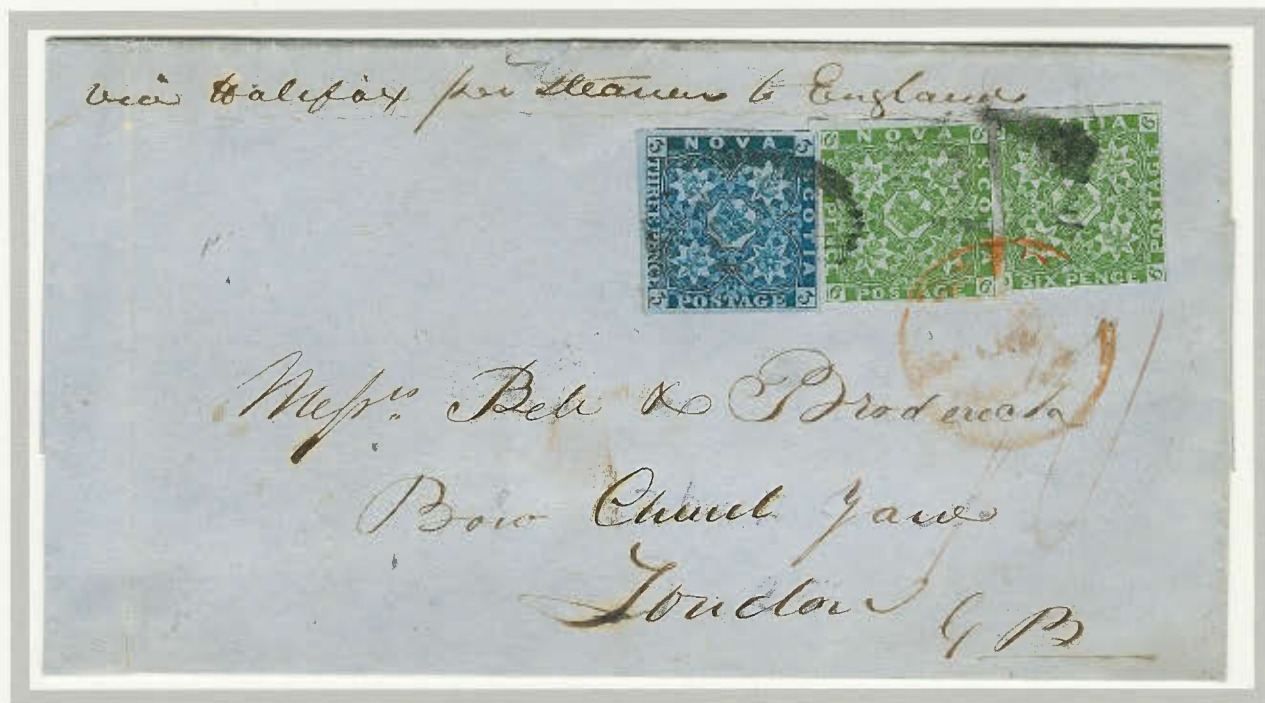 via Halifax per Steamer to England
NOVA
SCOTIA
THREE PENCE
POSTAGE
NOVA
SCO
POSTAGE
TIA
POSTAGE
SIX PENCE
Messrs. Bell & Broderick
Bow Church Yard
London
G B